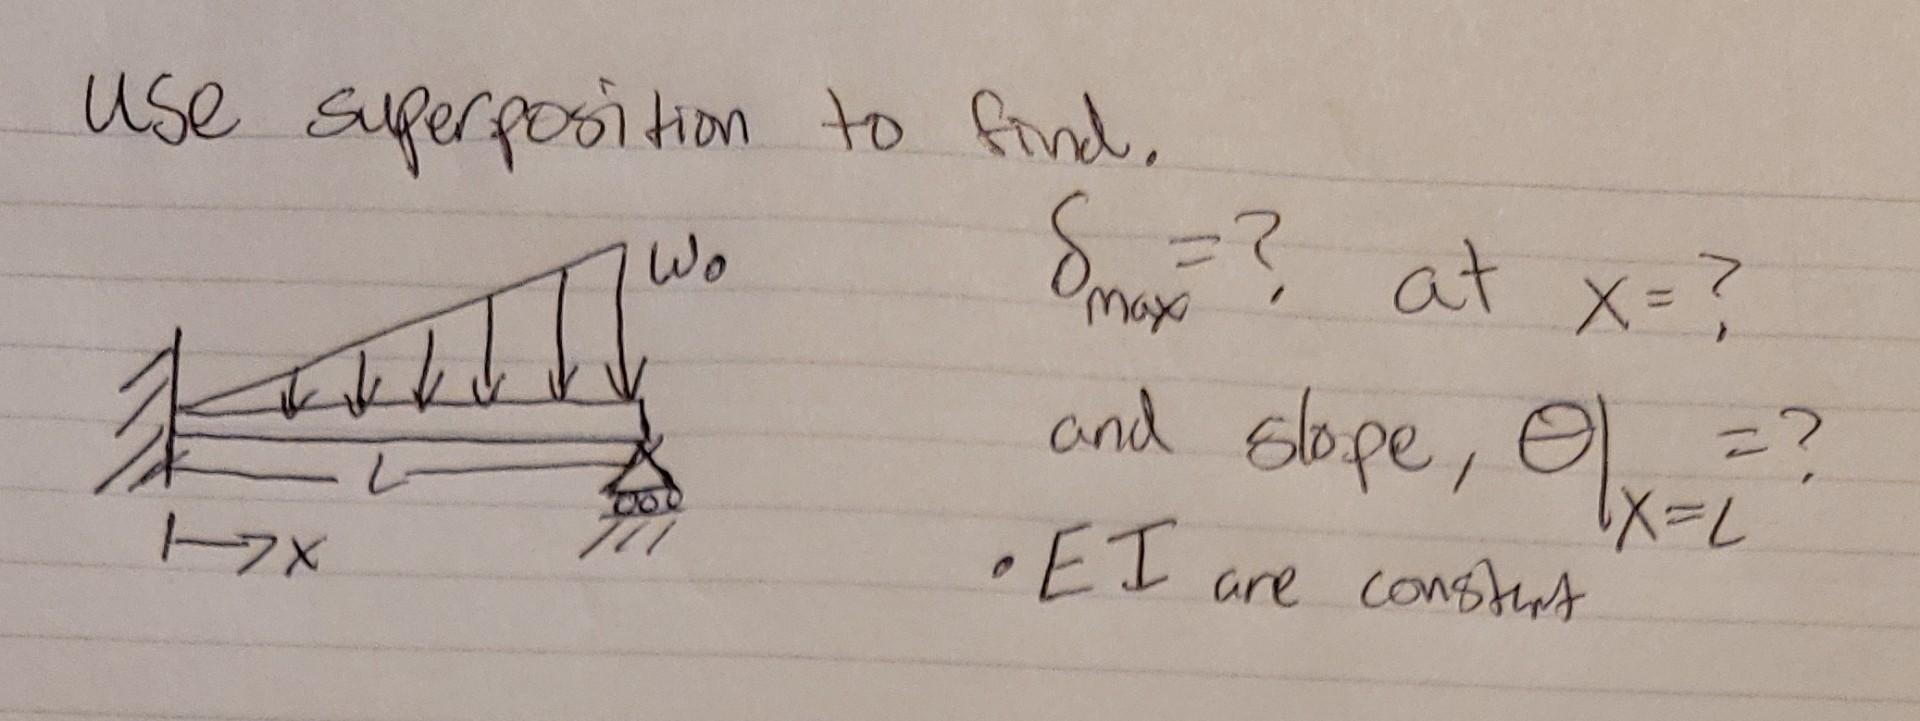 Use superposition to find.
δmax = ? at x = ?
W₀
and slope, θ|x=L = ?
L
• EI are constant
x